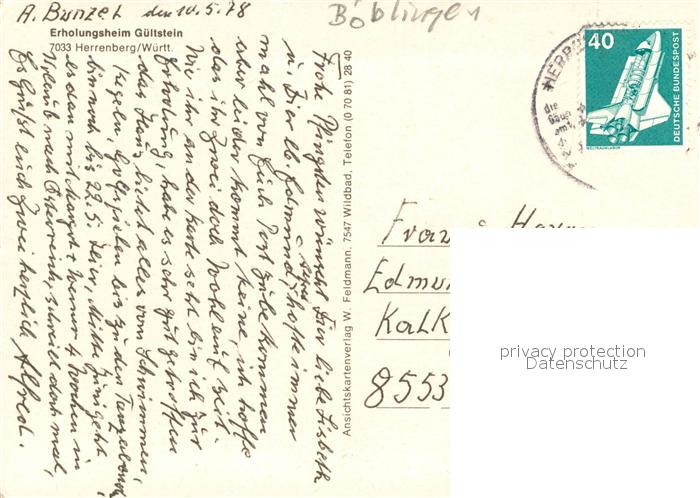 A. Bunzel den 10.5.78
Böblingen
Erholungsheim Gültstein
7033 Herrenberg/Württ.
Frohe Pfingsten wünscht Dir liebe Lisbeth
u. Dir lb. Edmund, hoffe immer
mal von Euch Post zu bekommen
aber leider kommt keine, ich hoffe
das ihr zwei doch Wohlauf seit.
Wie ihr an der Karte seht bin ich zur
Erholung, habe es sehr gut getroffen
das Haus bietet alles vom Schwimmen,
Kegeln, bis zu den
bin noch bis 22.5. hier, Mitte Juni geht
es dann mit Margot + Werner 4 Wochen in
Urlaub nach Österreich, schreibt doch mal,
Es Grüßt euch Zwei herzlich Alfred.
Ansichtskartenverlag W. Feldmann, 7547 Wildbad, Telefon (0 70 81) 28 40
40
DEUTSCHE BUNDESPOST
WELTRAUMLABOR
Edmu
Kalk
8553
privacy protection
Datenschutz